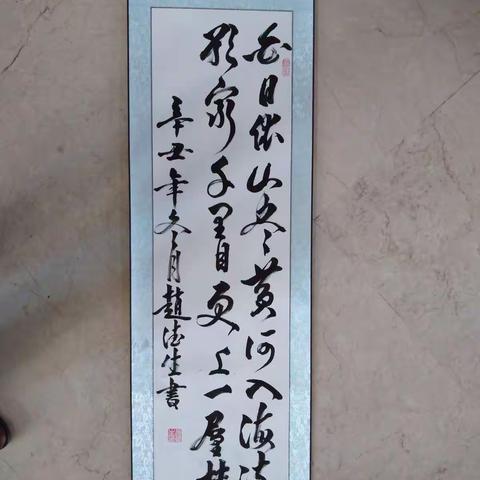 白日依山尽黄河入海流
欲穷千里目更上一層楼
辛丑年冬月趙德生書